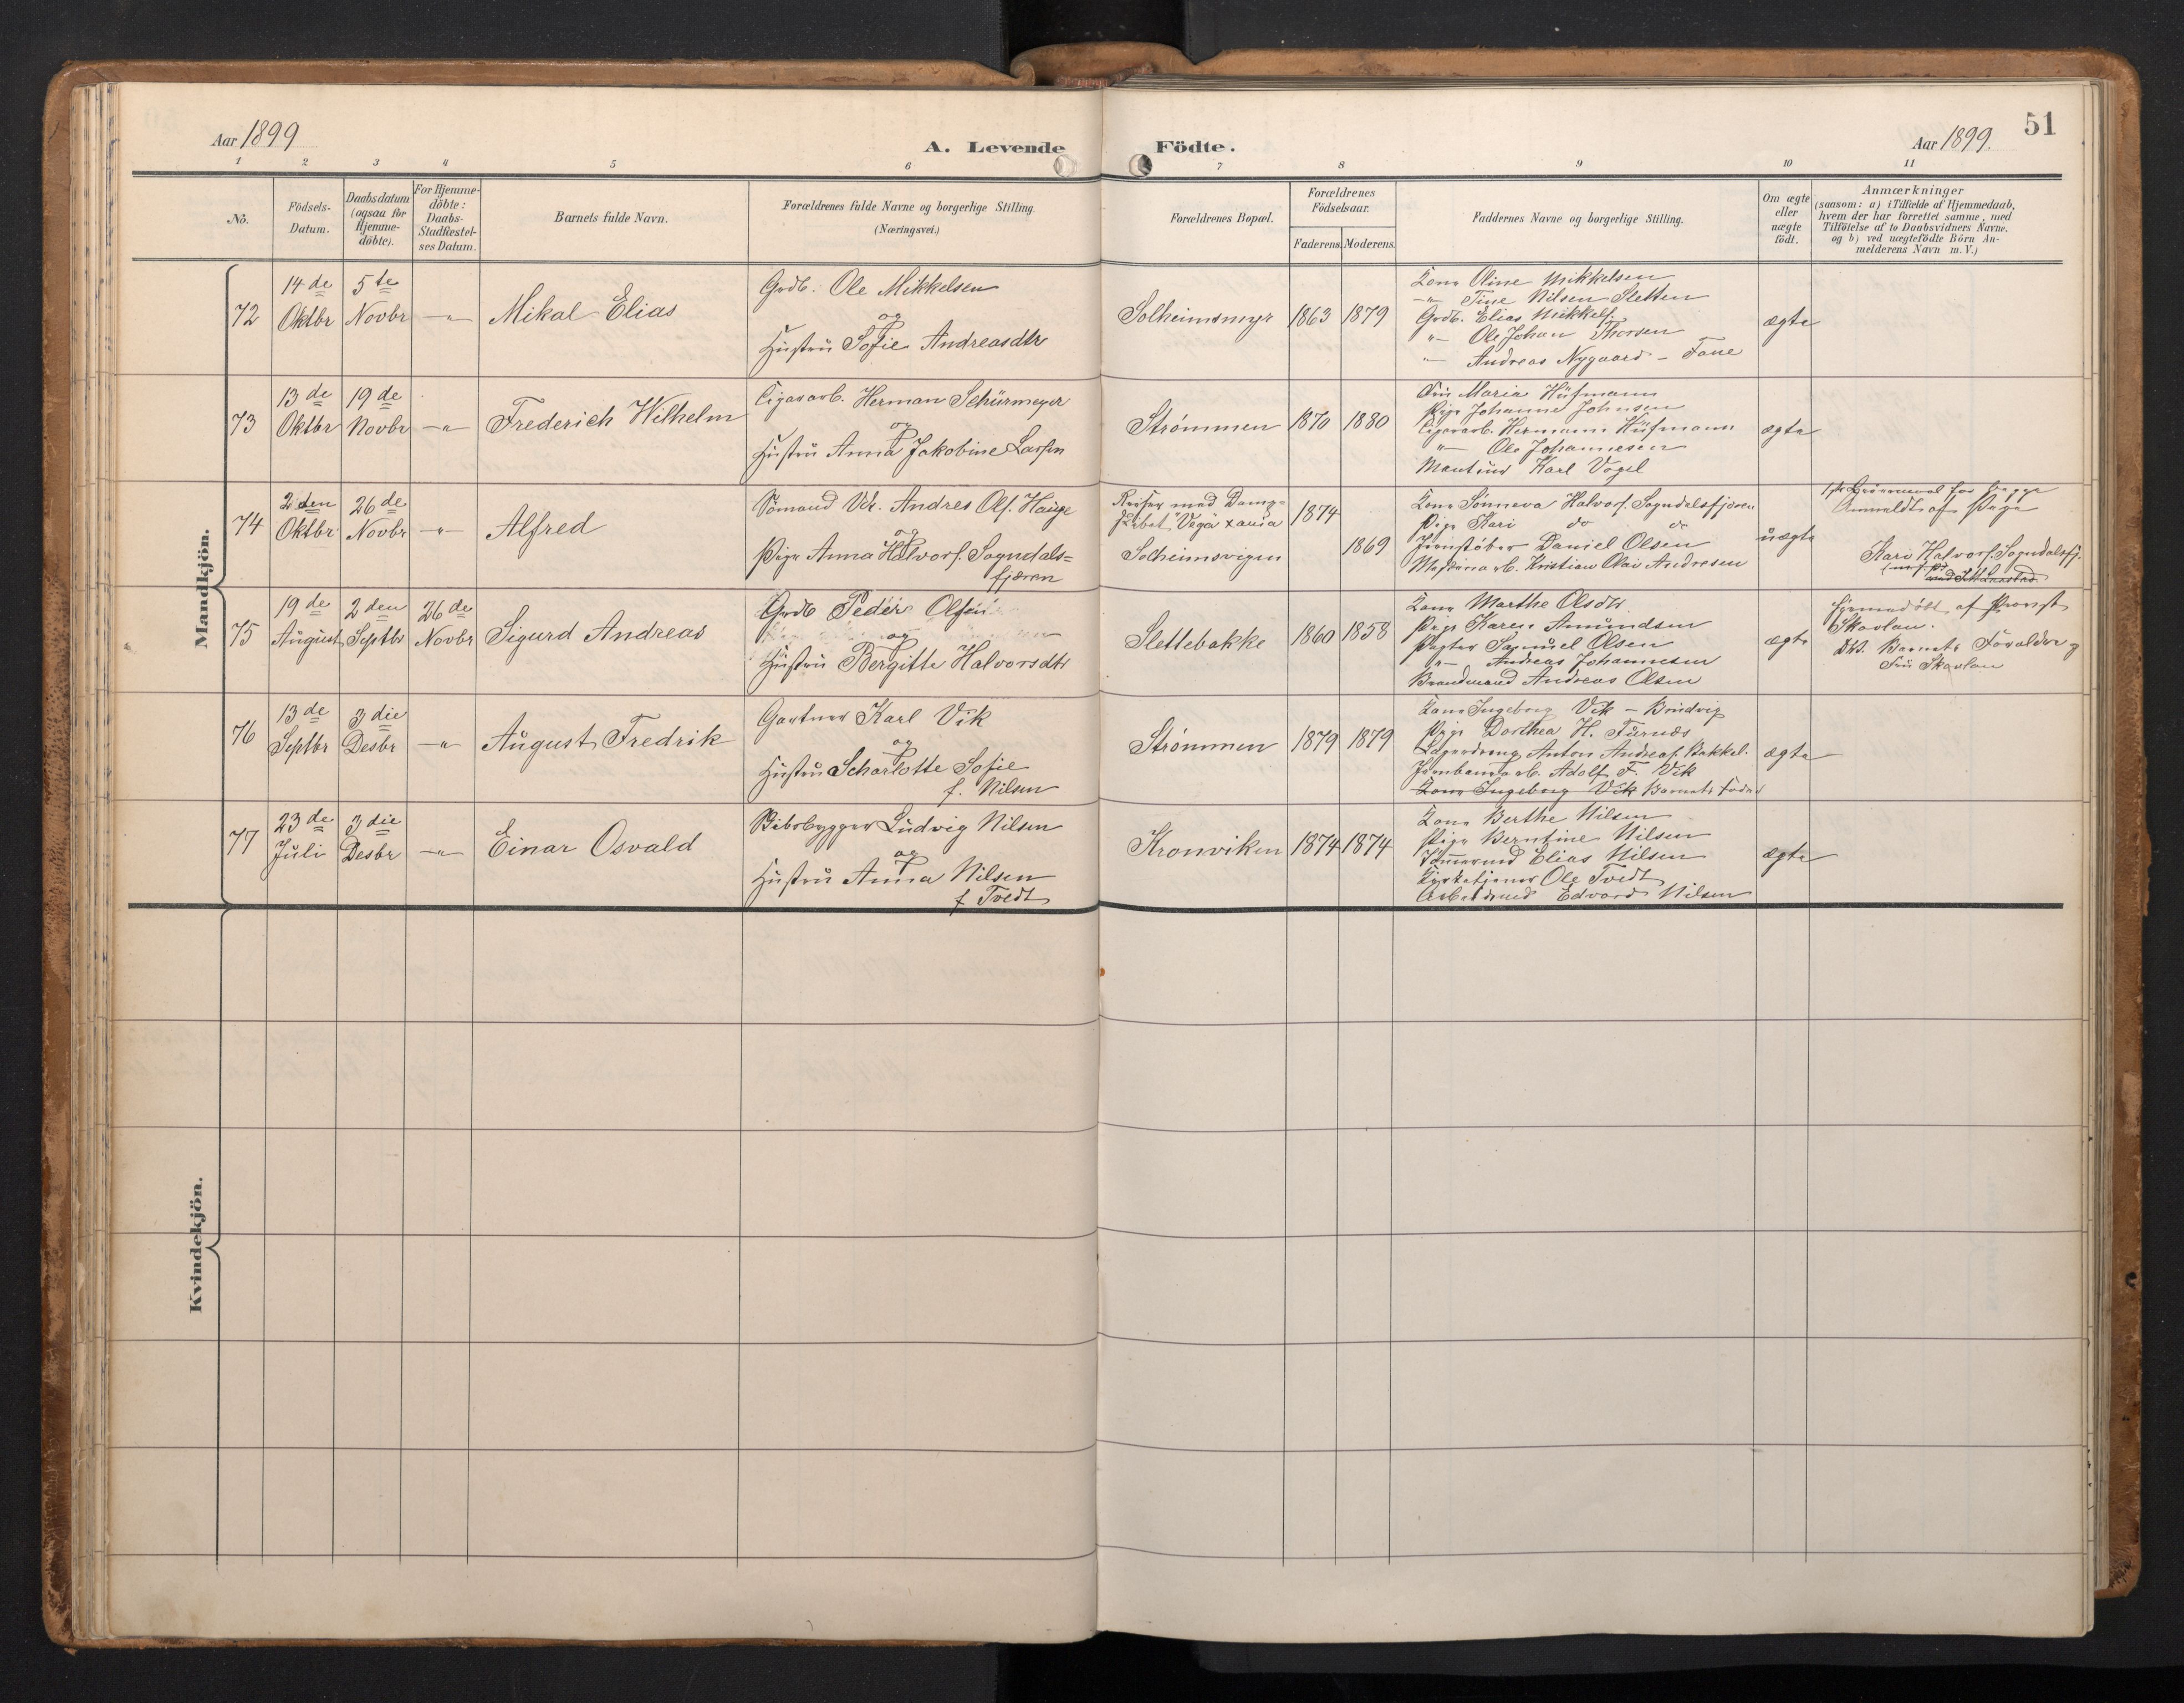 Aar 1899
A. Levende Födte.
Aar 1899.
51
1 2 3 4 5 6 7 8 9 10 11
No.
Födsels-
Datum.
Daabsdatum
(ogsaa for
Hjemme-
döbte).
For Hjemme-
döbte:
Daabs-
Stadfæstel-
ses Datum.
Barnets fulde Navn.
Forældrenes fulde Navne og borgerlige Stilling.
(Næringsvei.)
Forældrenes Bopæl.
Forældrenes
Födselsaar.
Faderens. Moderens.
Faddernes Navne og borgerlige Stilling.
Om ægte
eller
uægte
födt.
Anmærkninger
(saasom: a) i Tilfælde af Hjemmedaab,
hvem der har forrettet samme, med
Tilföielse af to Daabsvidners Navne.
og b) ved uægtefödte Börn An-
melderens Navn m. V.)
Mandkjön.
72
14de
Oktbr
5te
Novbr
-"-
Mikal Elias
Grdb. Ole Mikkelsen
og
Hustru Sofie Andreasdtr
Solheimsmyr
1863 1879
Kone Oline Mikkelsen
-"- Tine Nilsen Sletten
Grdb. Elias Mikkels.
"- Ole Johan Thorsen
"- Andreas Nygaard - Fane
ægte
73
13de
Oktbr
19de
Novbr
-"-
Frederich Wilhelm
Cigararb. Herman Schürmeyer
og
Hustru Anna Jakobine Larsen
Strømmen
1870 1880
Fru Maria Hüfmann
Pige Johanne Johnsen
Cigararb. Hermann Hüfmann
"- Ole Johannesen
Karl Vogel
ægte
74
2den
Oktbr
26de
Novbr
-"-
Alfred
Sömand Andres Ols. Hauge
og
Pige Anna Halvors. Sogndals=
fjæren
Reiser med Damp=
skibet "Vega"
Solheimsvigen
1874
1869
Kone Sønneva Halvors. Sogndalsfjæren
Pige Kari do do
Jernstøber Daniel Olsen
Kristian Olai Andresen
uægte
Anmeldt af Pige
Kari Halvors. Sogndalsfj.
75
19de
August
2den
Septbr
26de
Novbr
Sigurd Andreas
Grdb Peder Olsen
og
Hustru Bergitte Halvorsdtr
Slettebakke
1860 1858
Kone Marthe Olsdtr.
Pige Karen Amundsen
Pagter Samuel Olsen
"- Andreas Johannesen
Brandmand Andreas Olsen
ægte
Hjemmedöbt af Provst
Skavlan.
Barnets Forældre og
Fru Skavlan
76
13de
Septbr
3die
Desbr
-"-
August Fredrik
Gartner Karl Vik
og
Hustru Scharlotte Sofie
f. Nilsen
Strømmen
1879 1879
Kone Ingeborg Vik -
Pige Dorthea H. Furnæs
Anton Andreas Bakkel.
Jernbanearb. Adolf F. Vik
Kone Ingeborg Vik Barnets Fader
ægte
77
23de
Juli
3die
Desbr
-"-
Einar Osvald
Skibsbygger Ludvig Nilsen
og
Hustru Anna Nilsen
f. Tvedt
Kronviken
1874 1874
Kone Berthe Nilsen
Pige Berntine Nilsen
Tömmermd Elias Nilsen
Kirketjener Ole Tvedt
Arbeidsmd Edvard Nilsen
ægte
Kvindekjön.